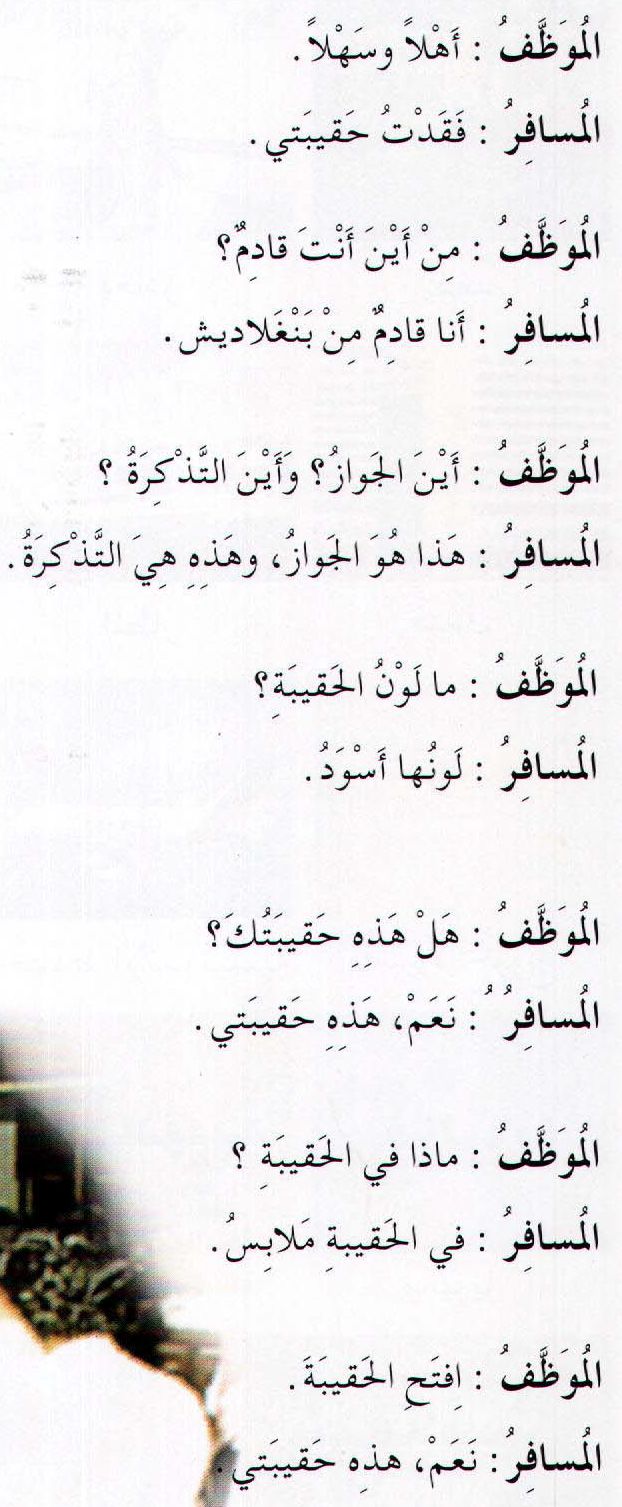 الْمُوَظَّفُ : أَهْلاً وسَهْلاً.
الْمُسافِرُ : فَقَدْتُ حَقيبَتي.
الْمُوَظَّفُ : مِنْ أَيْنَ أَنْتَ قادِمٌ؟
الْمُسافِرُ : أَنا قادِمٌ مِنْ بَنْغَلاديش.
الْمُوَظَّفُ : أَيْنَ الجَوازُ؟ وَأَيْنَ التَّذْكِرَةُ ؟
الْمُسافِرُ : هَذا هُوَ الجَوازُ، وهَذِهِ هِيَ التَّذْكِرَةُ.
الْمُوَظَّفُ : ما لَوْنُ الحَقيبَةِ؟
الْمُسافِرُ : لَونُها أَسْوَدُ.
الْمُوَظَّفُ : هَلْ هَذِهِ حَقيبَتُكَ؟
الْمُسافِرُ : نَعَمْ، هَذِهِ حَقيبَتي.
الْمُوَظَّفُ : ماذا في الحَقيبَةِ ؟
الْمُسافِرُ : في الحَقيبةِ مَلابِسُ.
الْمُوَظَّفُ : اِفتَحِ الحَقيبَةَ.
الْمُسافِرُ : نَعَمْ، هذِهِ حَقيبَتي.